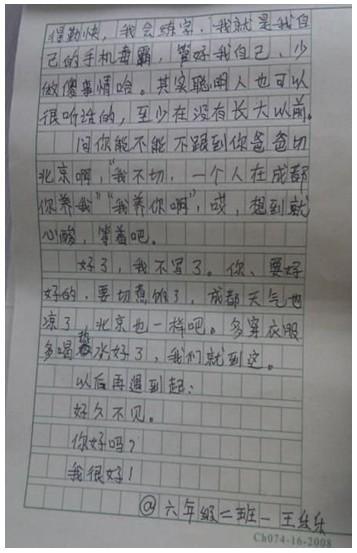 得勤快，我会练字，我就是我自
己的手机毒霸，管好我自己、少
做傻事情哈。其实聪明人也可以
很听话的，至少在没有长大以前。
问你能不能不跟到你爸爸切
北京啊，“我不切，一个人在成都
你养我”“我养你啊”，哎，想到就
心酸，等着吧。
好了，我不写了。你、要好
好的，要切煮饭了，成都天气也
凉了，北京也一样吧。多穿衣服
多喝热水好了，我们就到这。
以后再遇到起：
好久不见。
你好吗？
我很好！
@六年级二班一王
Ch074-16-2008